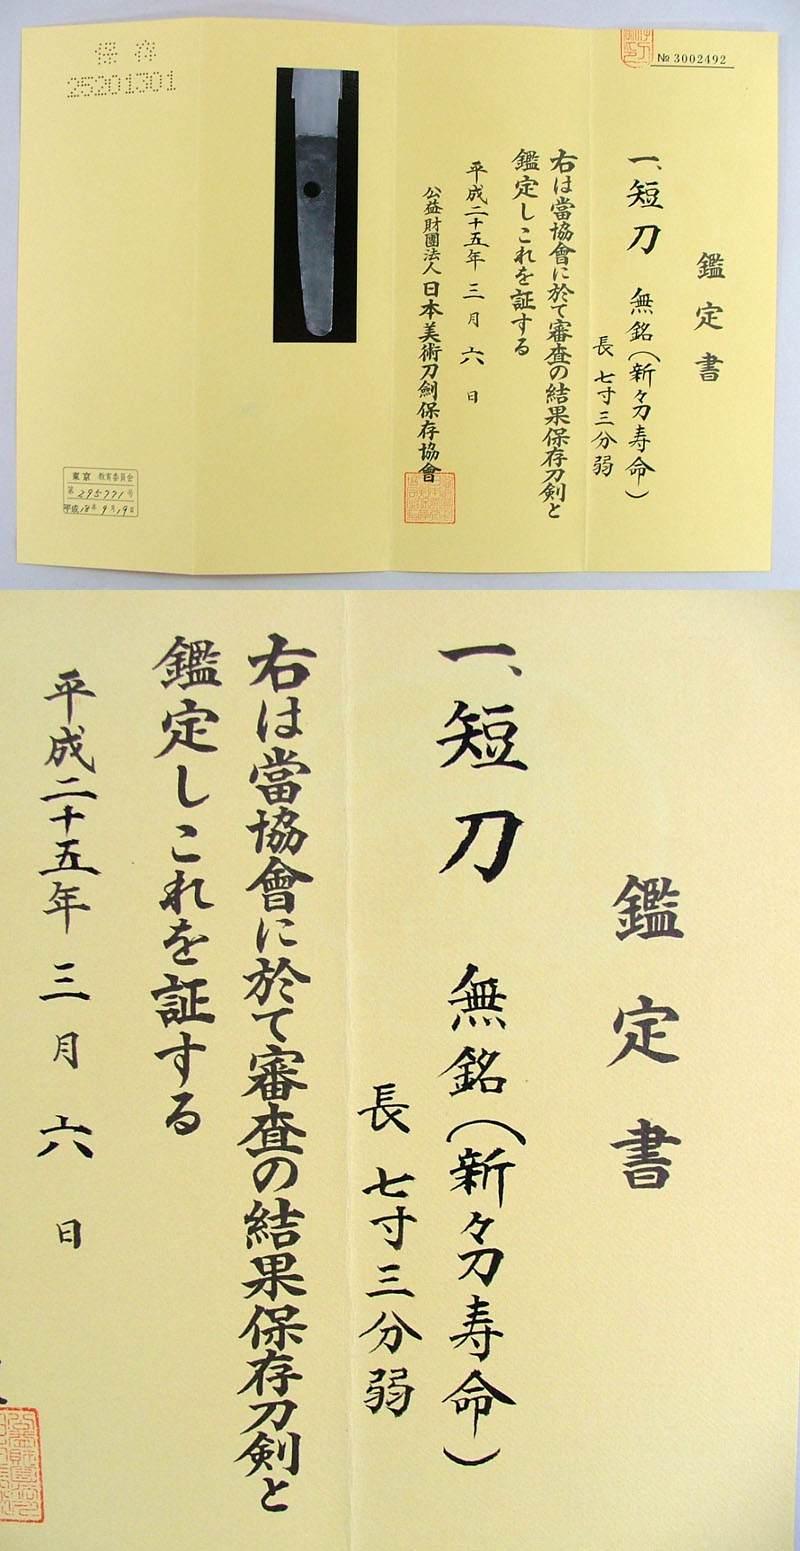 保存
25201301
№ 3002492
鑑定書
一、短刀 無銘(新々刀寿命)
長 七寸三分弱
右は當協會に於て審査の結果保存刀剣と
鑑定しこれを証する
平成二十五年 三月 六日
公益財團法人 日本美術刀劍保存協會
東京 教育委員会
第 295771 号
平成 18年 9月 19日
鑑定書
一、短刀 無銘(新々刀寿命)
長 七寸三分弱
右は當協會に於て審査の結果保存刀剣と
鑑定しこれを証する
平成二十五年 三月 六日